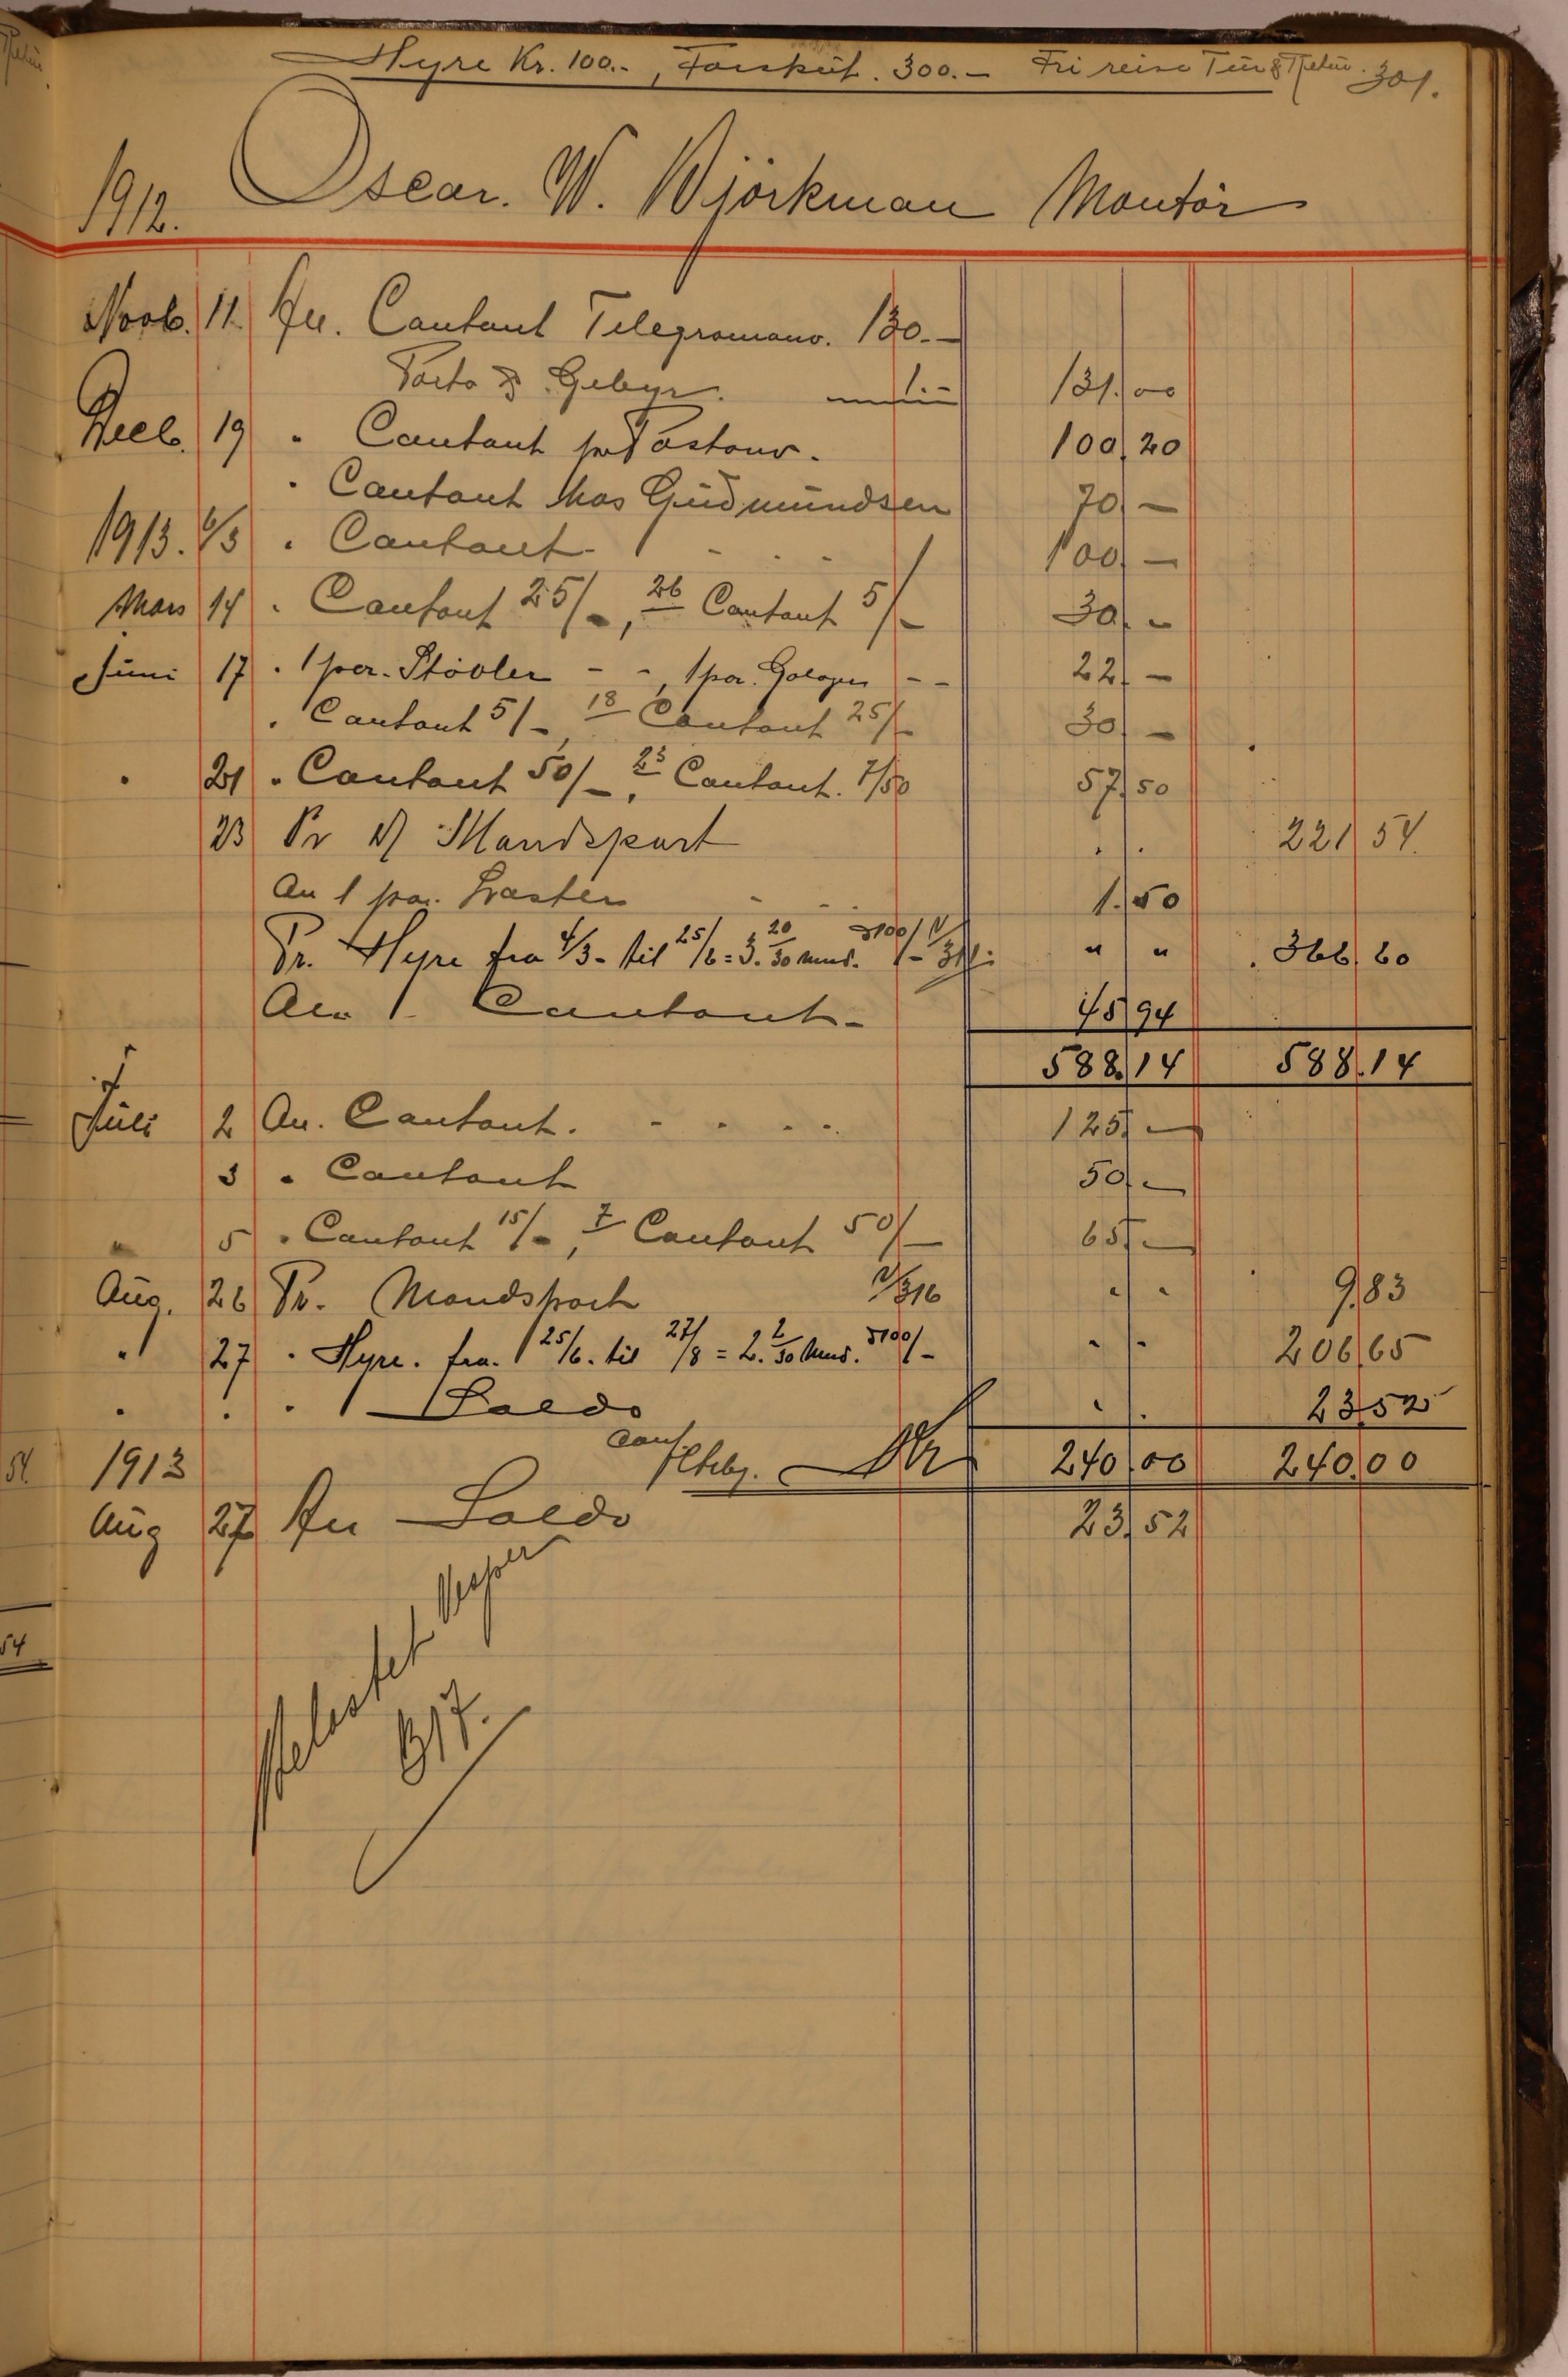 Hyre Kr. 100.-, Forsküt. 300.- Fri reise Tür & Retür. 301.
1912. Oscar. W. Bjôrkman Montör
Novb. 11. An. Contant Telegramanv. 130.-
Porto & Gebyr. 1.- 131.00
Decb. 19 " Contant pr Postanv. 100.20
" Contant hos Güdmündsen 70.-
1913. 6/3 " Contant - - - 100.-
Mars 14 " Contant 25/-, 26 Contant 5/- 30.-
Jüni 17 " 1 par. Stövler - -, 1 par. Galoger - - 22.-
" Contant 5/-, 18 Contant 25/- 30.-
" 21 " Contant 50/-, 23 Contant. 7/50 57.50
23 Pr Mandspart " " 221 54.
An 1 par. Træsten - - - 1.50
Pr. Hyre fra 4/3- til 25/6 = 3. 20/30 mnd. à 100/- " " 366.60
An Contant- 45 94
588.14 588.14
Jüli 2 An. Contant. - - - - 125.-
3 " Contant 50.-
" 5 " Contant 15/-, 7 Contant 50/- 65.-
Aüg. 26 Pr. Mandspart V/316 " " 9.83
" 27 " Hyre. fra. 25/6. til 27/8 = 2. 2/30 Mnd. à 100/- " " 206 65
" " " Saldo " " 23.52
1913 Kr 240.00 240.00
Aüg 27 An Saldo 23.52
Belastet Vesper
1917.
54.
54